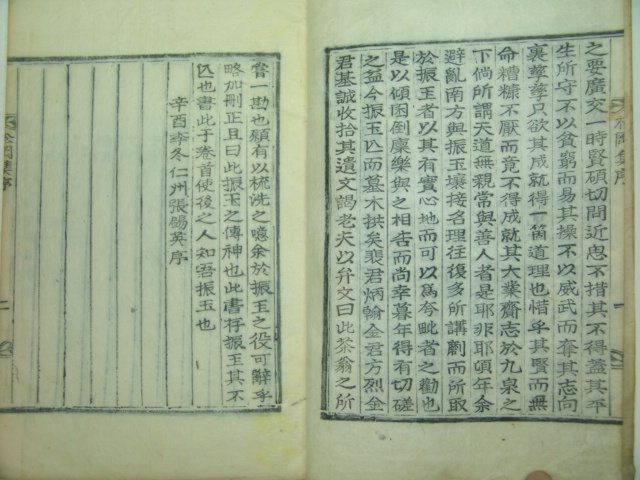 之要廣交一時賢碩切問近思不措其不得蓋其平
生所守不以貧窮而易其操不以威武而奪其志向
裏孳孳只欲其成就得一箇道理也惜乎其賢而無
命糟糠不厭而竟不得成就其大業齎志於九泉之
下倘所謂天道無親常與善人者是耶非耶頃年余
避亂南方與振玉壤接名理往復多所講劘而所取
於振玉者以其有實心地而可以爲夸毗者之勸也
是以傾囷倒廩樂與之相告而尚幸暮年得有切磋
之益今振玉亡而墓木拱矣裴君炳翰金君方烈金
君基誠收拾其遺文謁老夫以弁文曰此茶翁之所
嘗一勘也願有以梳洗之噫余於振玉之役可辭乎
略加刪正且曰此振玉之傳神也此書存振玉其不
亡也書此于卷首使後之人知吾振玉也
辛酉季冬仁州張錫英序
岡集序
二